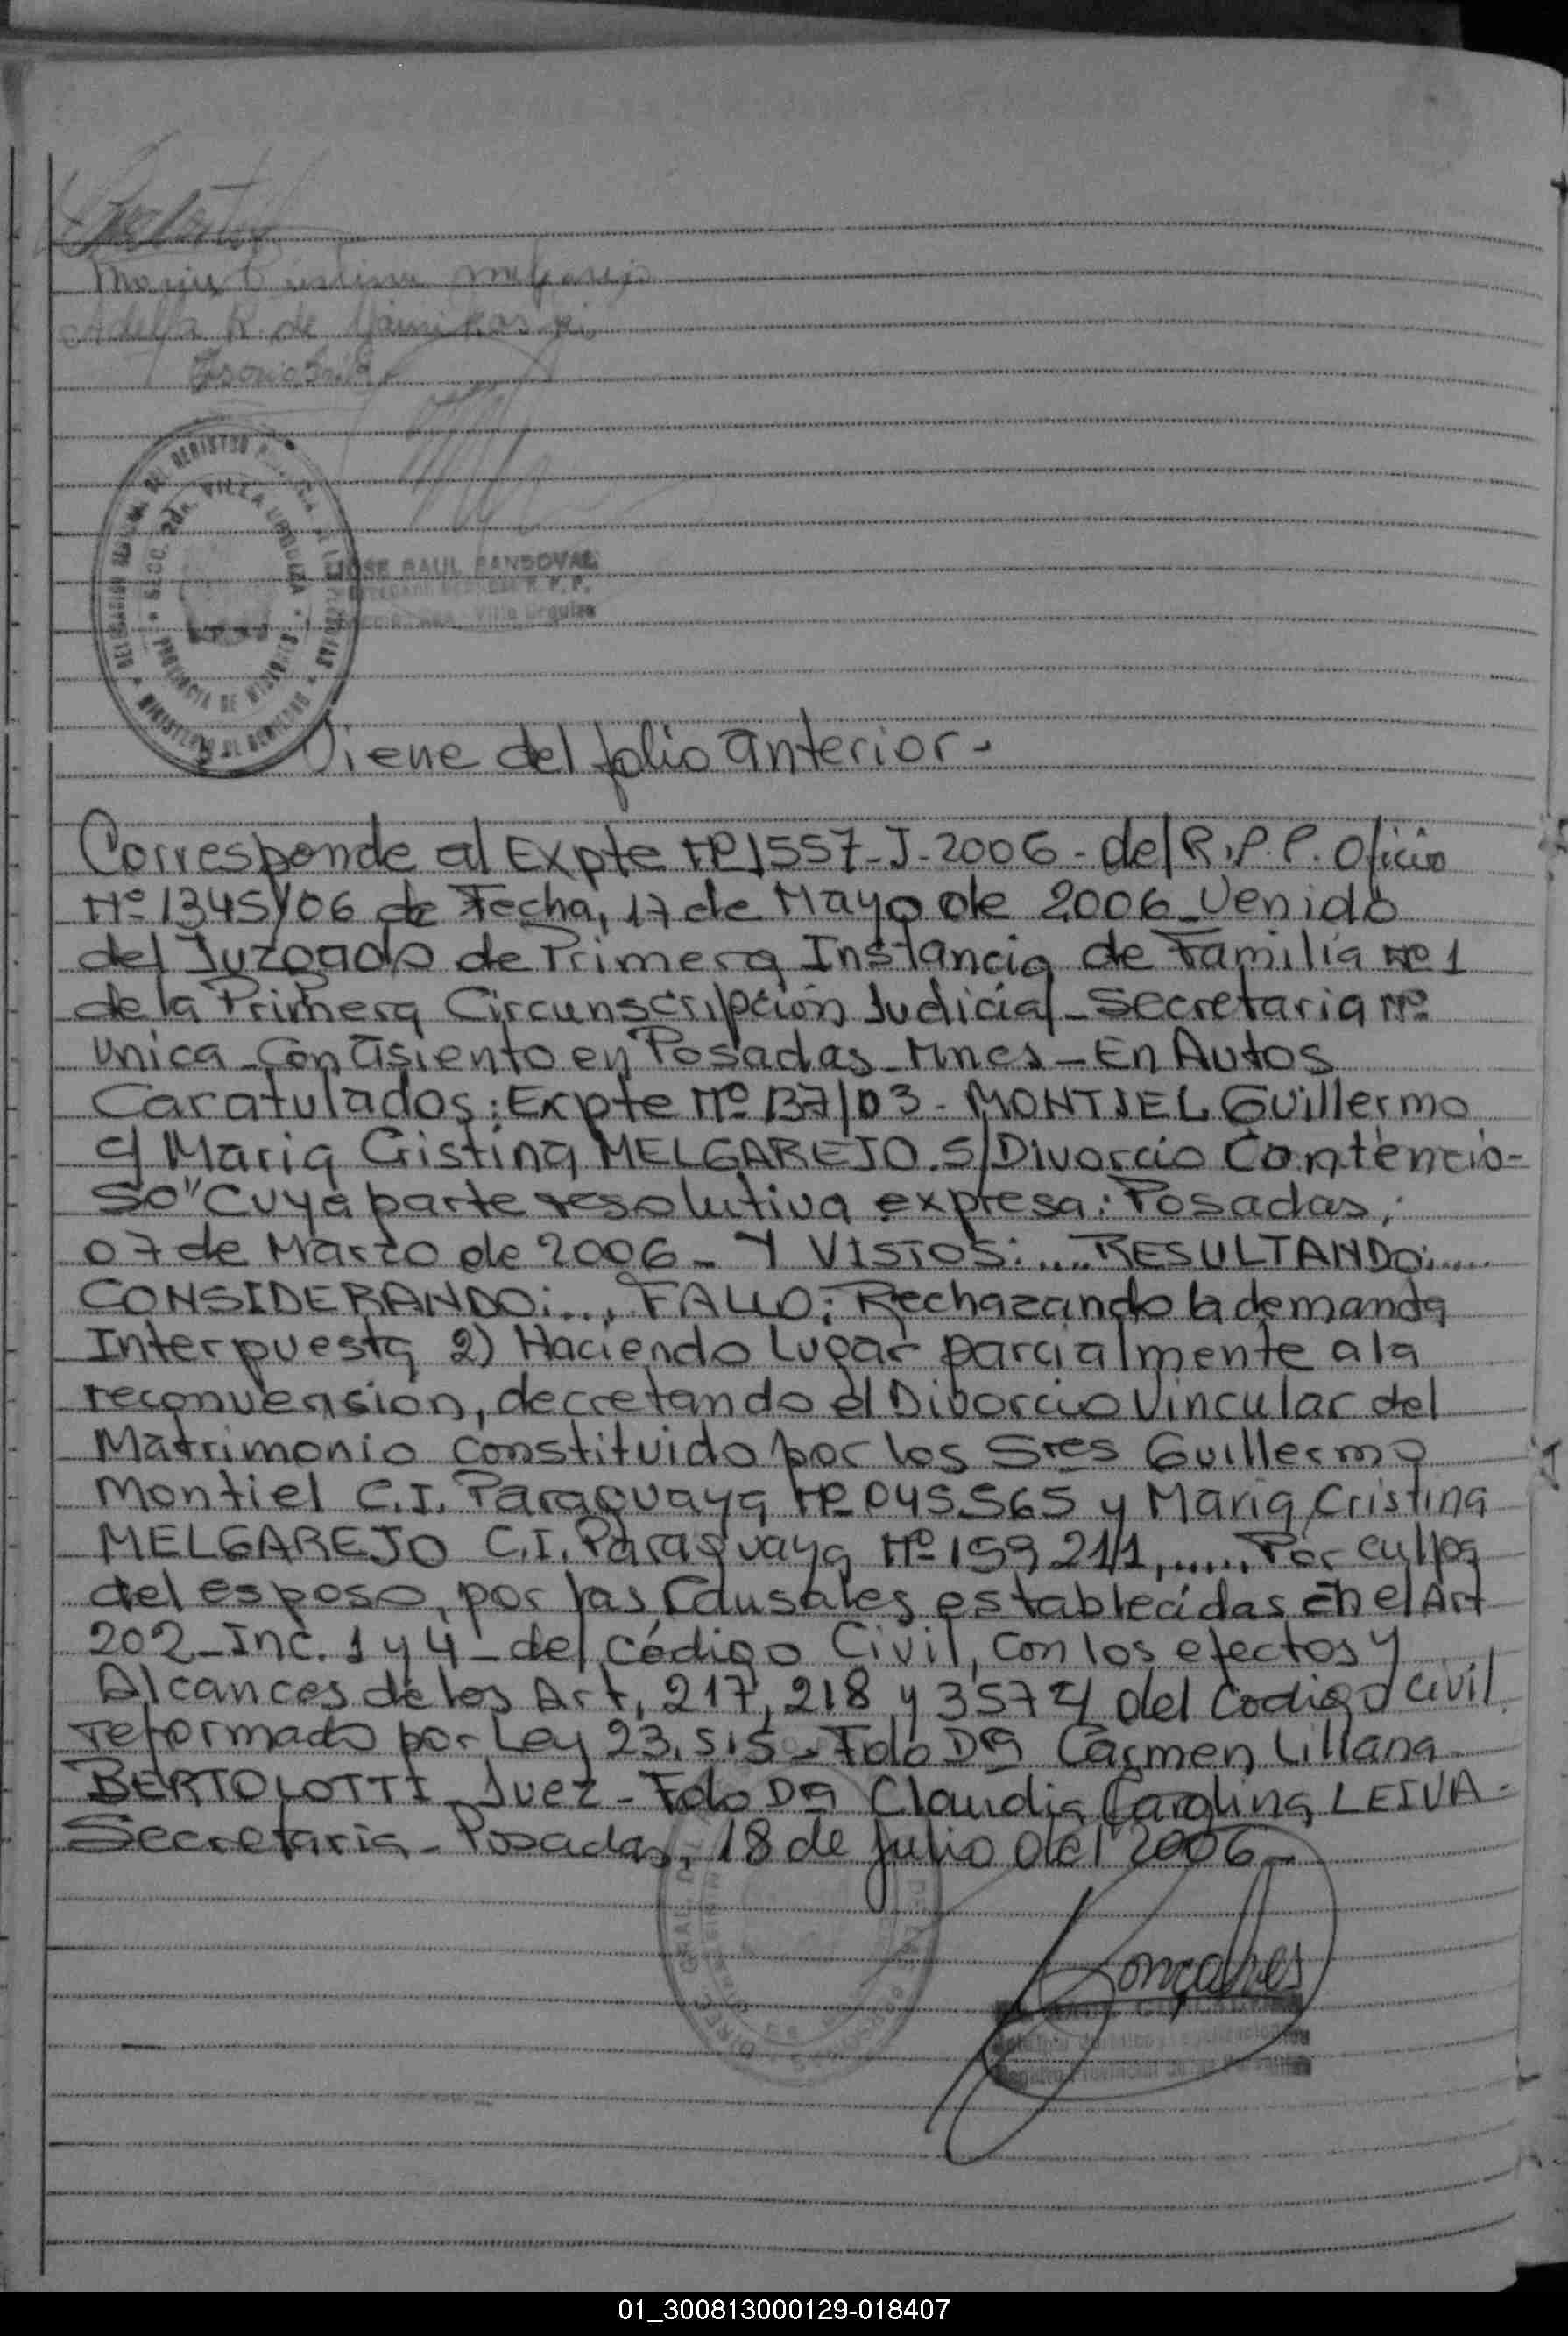 Maria Cristina Melgarejo
Adela R. de
JOSE RAUL SANDOVAL
Villa Urquiza
VILLA URQUIZA
PROVINCIA DE MISIONES
MINISTERIO DE GOBIERNO
Viene del folio anterior -
Corresponde al Expte Nº 1557-J-2006 - del R.P.P. Oficio
Nº 1345/06 de Fecha, 17 de Mayo de 2006 - Venido
del Juzgado de Primera Instancia de Familia Nº 1
de la Primera Circunscripción Judicial - Secretaria Nº
Unica - Con Asiento en Posadas - Mnes - En Autos
Caratulados: Expte Nº 137/03 - MONTIEL Guillermo
c/ Maria Cristina MELGAREJO. S/Divorcio Contencio-
so" Cuya parte resolutiva expresa: Posadas,
07 de Marzo de 2006 - Y VISTOS: .... RESULTANDO: ....
CONSIDERANDO: ... FALLO: Rechazando la demanda
Interpuesta 2) Haciendo Lugar parcialmente a la
reconvension, decretando el Divorcio Vincular del
Matrimonio constituido por los Sres Guillermo
Montiel C.I. Paraguaya Nº 045.565 y Maria Cristina
MELGAREJO C.I. Paraguaya Nº 159.211, ..... Por culpa
del esposo, por las Causales establecidas En el Art
202 - Inc. 1 y 4 - del Código Civil, con los efectos y
Alcances de los Art, 217, 218 y 3574 del Codigo Civil
reformado por Ley 23.515 - Fdo Dra Carmen Liliana
BERTOLOTTI - Juez - Fdo Dra Claudia Carolina LEIVA -
Secretaria - Posadas, 18 de Julio del 2006 -
Gonçalves
01_300813000129-018407